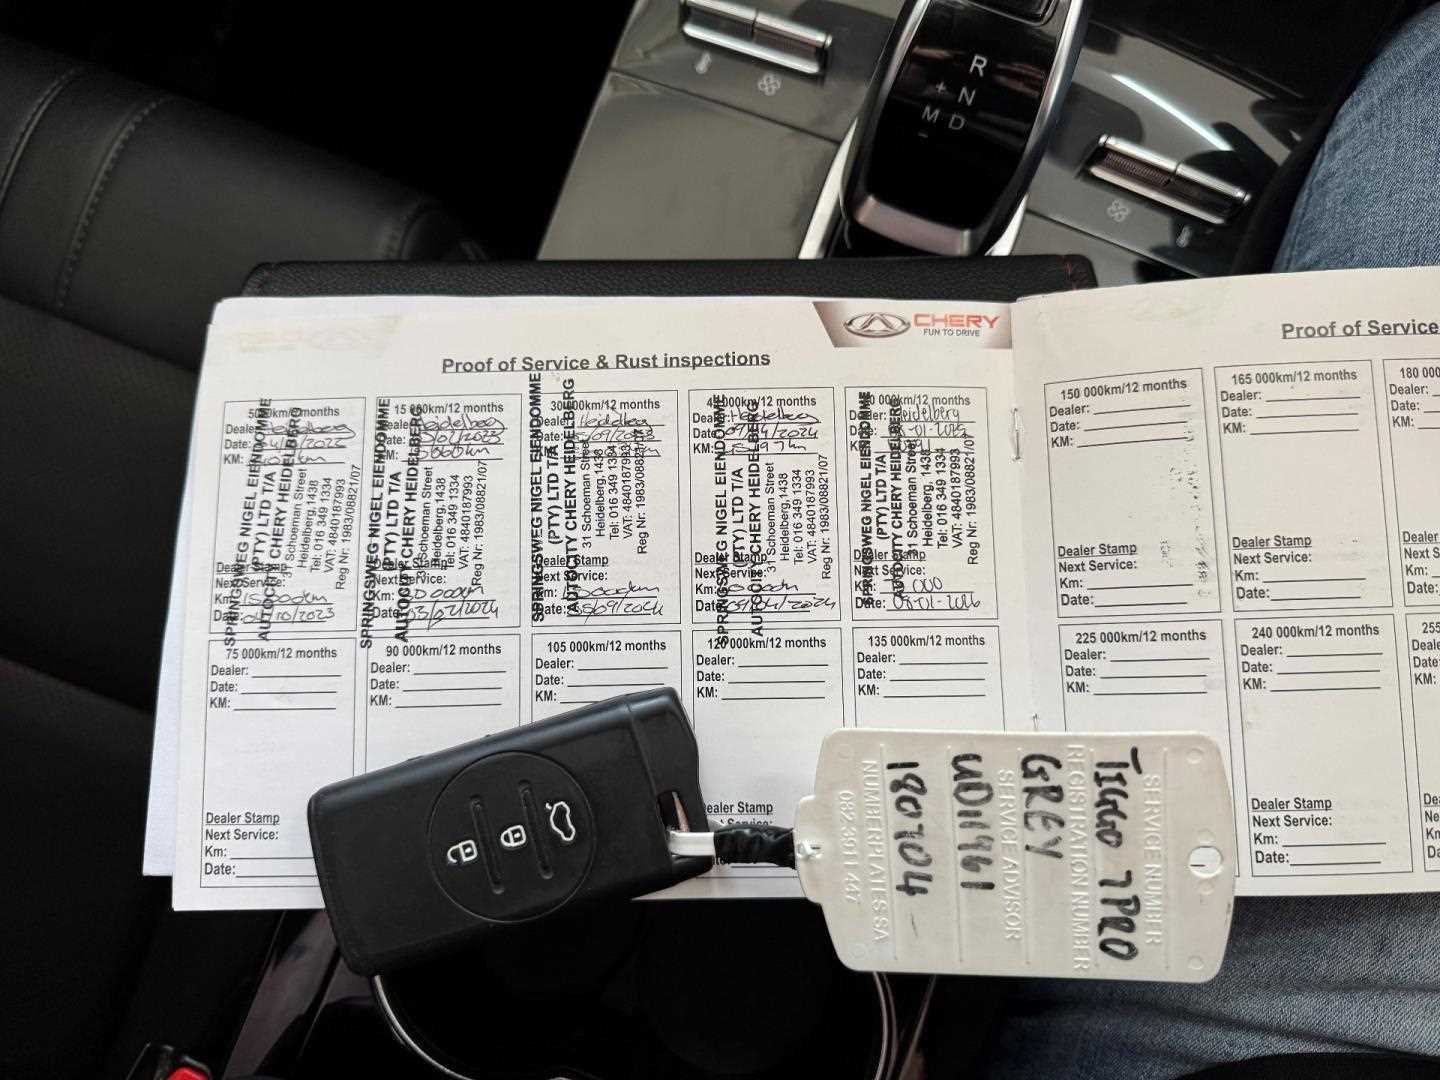 R
+ N
M D
-
CHERY
FUN TO DRIVE
Proof of Service & Rust inspections
Proof of Service
5000km/12 months
Dealer: Heidelberg
Date:
KM:
SPRINGSWEG NIGEL EIENDOMME
(PTY) LTD T/A
AUTOCITY CHERY HEIDELBERG
31 Schoeman Street
Heidelberg, 1438
Tel: 016 349 1334
VAT: 4840187993
Reg Nr: 1983/08821/07
Dealer Stamp
Next Service:
Km: 15000km
Date: /10/2023
15 000km/12 months
Dealer: Heidelberg
Date: /02/2023
KM:
SPRINGSWEG NIGEL EIENDOMME
(PTY) LTD T/A
AUTOCITY CHERY HEIDELBERG
31 Schoeman Street
Heidelberg, 1438
Tel: 016 349 1334
VAT: 4840187993
Reg Nr: 1983/08821/07
Dealer Stamp
Next Service:
Km: 000km
Date: 03/02/2024
30 000km/12 months
Dealer: Heidelberg
Date: /09/2023
KM:
SPRINGSWEG NIGEL EIENDOMME
(PTY) LTD T/A
AUTOCITY CHERY HEIDELBERG
31 Schoeman Street
Heidelberg, 1438
Tel: 016 349 1334
VAT: 4840187993
Reg Nr: 1983/08821/07
Dealer Stamp
Next Service:
Km: 000km
Date: /09/2024
000km/12 months
Dealer: Heidelberg
Date: /04/2024
KM:
SPRINGSWEG NIGEL EIENDOMME
(PTY) LTD T/A
AUTOCITY CHERY HEIDELBERG
31 Schoeman Street
Heidelberg, 1438
Tel: 016 349 1334
VAT: 4840187993
Reg Nr: 1983/08821/07
Dealer Stamp
Next Service:
Km:
Date: /04/2024
000km/12 months
Heidelberg
SPRINGSWEG NIGEL EIENDOMME
(PTY) LTD T/A
AUTOCITY CHERY HEIDELBERG
31 Schoeman Street
Heidelberg, 1438
Tel: 016 349 1334
VAT: 4840187993
Reg Nr: 1983/08821/07
Dealer Stamp
Next Service:
Km: 000
Date: 08-01-2026
150 000km/12 months
Dealer:
Date:
KM:
Dealer Stamp
Next Service:
Km:
Date:
165 000km/12 months
Dealer:
Date:
KM:
Dealer Stamp
Next Service:
Km:
Date:
180 000
Dealer:
Date:
KM:
Dealer
Next S
Km:
Date:
75 000km/12 months
Dealer:
Date:
KM:
Dealer Stamp
Next Service:
Km:
Date:
90 000km/12 months
Dealer:
Date:
KM:
105 000km/12 months
Dealer:
Date:
KM:
120 000km/12 months
Dealer:
Date:
KM:
135 000km/12 months
Dealer:
Date:
KM:
225 000km/12 months
Dealer:
Date:
KM:
240 000km/12 months
Dealer:
Date:
KM:
Dealer Stamp
Next Service:
Km:
Date:
255
Date:
KM:
SERVICE NUMBER
TIGGO 7 PRO
REGISTRATION NUMBER
GREY
SERVICE ADVISOR
UD11961
180704
NUMBER PLATES SA
082 391 1 447